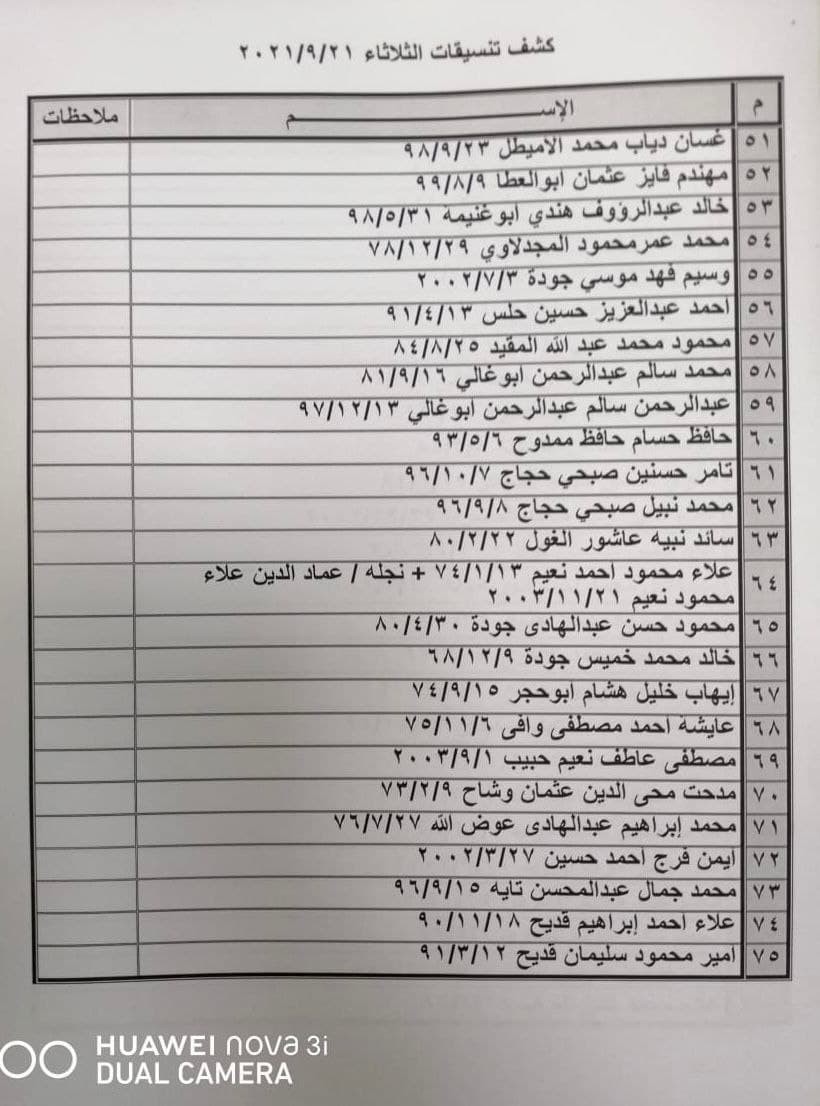 كشف تنسيقات الثلاثاء ٢٠٢١/٩/٢١
م الإســـــــــــــــــــــم ملاحظات
٥١ غسان دياب محمد الاميطل ٩٨/٩/٢٣
٥٢ مهندم فايز عثمان ابوالعطا ٩٩/٨/٩
٥٣ خالد عبدالرؤوف هندي ابوغنيمة ٩٨/٥/٣١
٥٤ محمد عمرمحمود المجدلاوي ٧٨/١٢/٢٩
٥٥ وسيم فهد موسي جودة ٢٠٠٢/٧/٣
٥٦ احمد عبدالعزيز حسين حلس ٩١/٤/١٣
٥٧ محمود محمد عبد الله المقيد ٨٤/٨/٢٥
٥٨ محمد سالم عبدالرحمن ابوغالي ٨١/٩/١٦
٥٩ عبدالرحمن سالم عبدالرحمن ابوغالي ٩٧/١٢/١٣
٦٠ حافظ حسام حافظ ممدوح ٩٣/٥/٦
٦١ تامر حسنين صبحي حجاج ٩٦/١٠/٧
٦٢ محمد نبيل صبحي حجاج ٩٦/٩/٨
٦٣ سائد نبيه عاشور الغول ٨٠/٢/٢٢
٦٤ علاء محمود احمد نعيم ٧٤/١/١٣ + نجله / عماد الدين علاء
محمود نعيم ٢٠٠٣/١١/٢١
٦٥ محمود حسن عبدالهادى جودة ٨٠/٤/٣٠
٦٦ خالد محمد خميس جودة ٦٨/١٢/٩
٦٧ إيهاب خليل هشام ابوحجر ٧٤/٩/١٥
٦٨ عايشة احمد مصطفى وافى ٧٥/١١/٦
٦٩ مصطفى عاطف نعيم حبيب ٢٠٠٣/٩/١
٧٠ مدحت محى الدين عثمان وشاح ٧٣/٢/٩
٧١ محمد إبراهيم عبدالهادى عوض الله ٧٦/٧/٢٧
٧٢ ايمن فرج احمد حسين ٢٠٠٢/٣/٢٧
٧٣ محمد جمال عبدالمحسن تايه ٩٦/٩/١٥
٧٤ علاء احمد إبراهيم قديح ٩٠/١١/١٨
٧٥ امير محمود سليمان قديح ٩١/٣/١٢
HUAWEI nova 3i
DUAL CAMERA